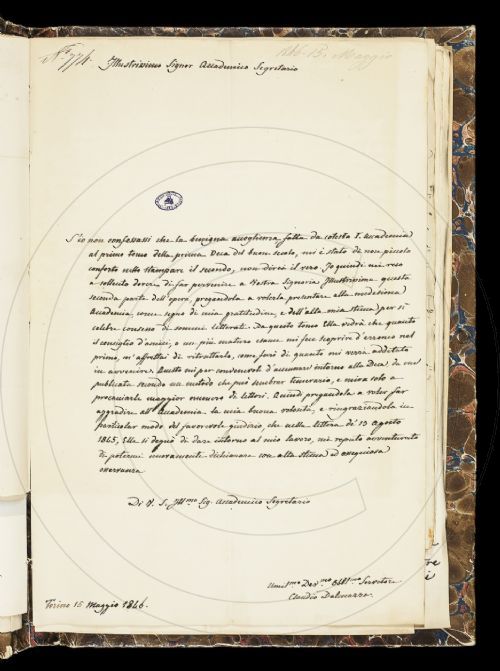 N.° 774.
1846-15. Maggio
Illustrissimo Signor Accademico Segretario
S'io non confessassi che la benigna accoglienza fatta da cotesta I. Accademia
al primo tomo della prima Deca del buon secolo, mi è stato di non piccolo
conforto nello stampare il secondo, non direi il vero. Io quindi mi reco
a sollecito dovere di far pervenire a Vostra Signoria Illustrissima questa
seconda parte dell'opera, pregandola a volerla presentare alla medesima
Accademia, come segno di mia gratitudine, e dell'alta mia stima per sì
celebre consesso di sommi letterati. Da questo tomo Ella vedrà che quanto
il consiglio d'amici, o un più maturo esame mi fece scoprire d'erroneo nel
primo, m'affrettai di ritrattarlo, come farò di quanto mi verrà additato
in avvenire. Questo mi par convenevol d'accennare intorno alla Deca da me
pubblicata secondo un metodo che può sembrar temerario, e mira solo a
procacciarle maggior numero di lettori. Quindi pregandola a voler far
aggradire all'Accademia la mia buona volontà, e ringraziandola in
particolar modo del favorevole giudizio, che nella lettera de' 13 agosto
1845, Ella si degnò di dare intorno al mio lavoro, mi reputo avventurato
di potermi nuovamente dichiarare con alta stima ed ossequiosa
osservanza
Di V. S. Ill.mo Sig. Accademico Segretario
Umil.mo Dev.mo Obbl.mo Servitore
Claudio Dalmazzo.
Torino 15 Maggio 1846.